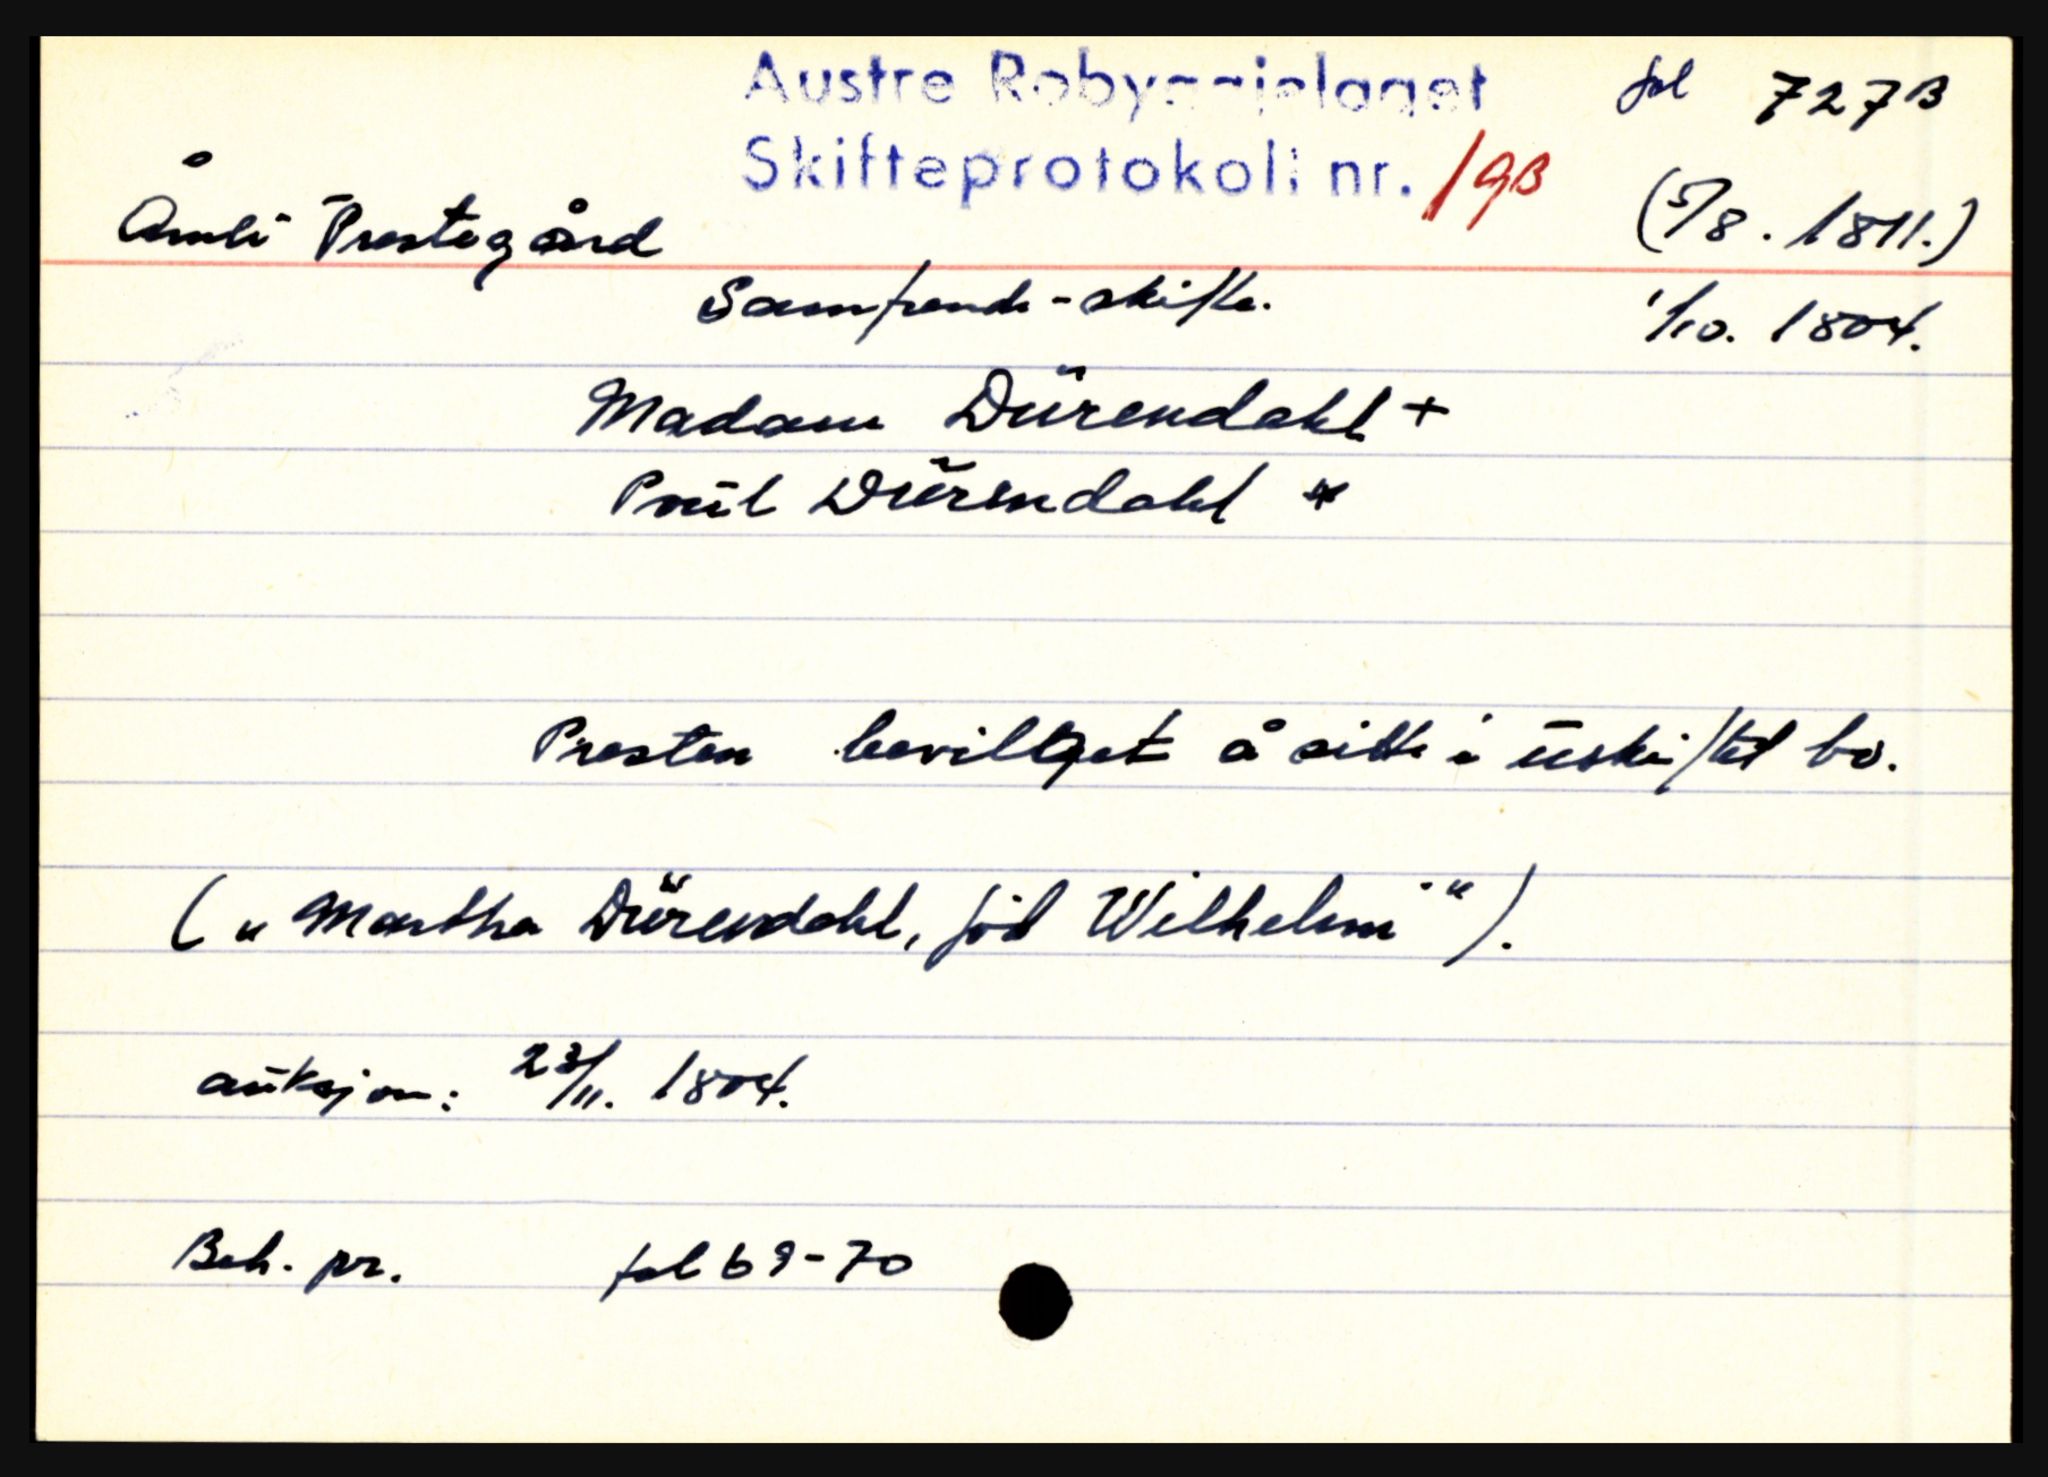 Austre Robyggjelaget fol 727B
Skifteprotokoll nr. 19B
Åmli Prestegård (5/8. 1811.)
Samfrende-skifte. 1/10. 1804.
Madam Dürendahl +
Poül Dürendahl *
Presten bevilget å sitte i üskiftet bo.
(„Martha Dürendahl, född Wilhelmi“).
aüksjon: 23/11. 1804.
Beh. pr. fol 69-70